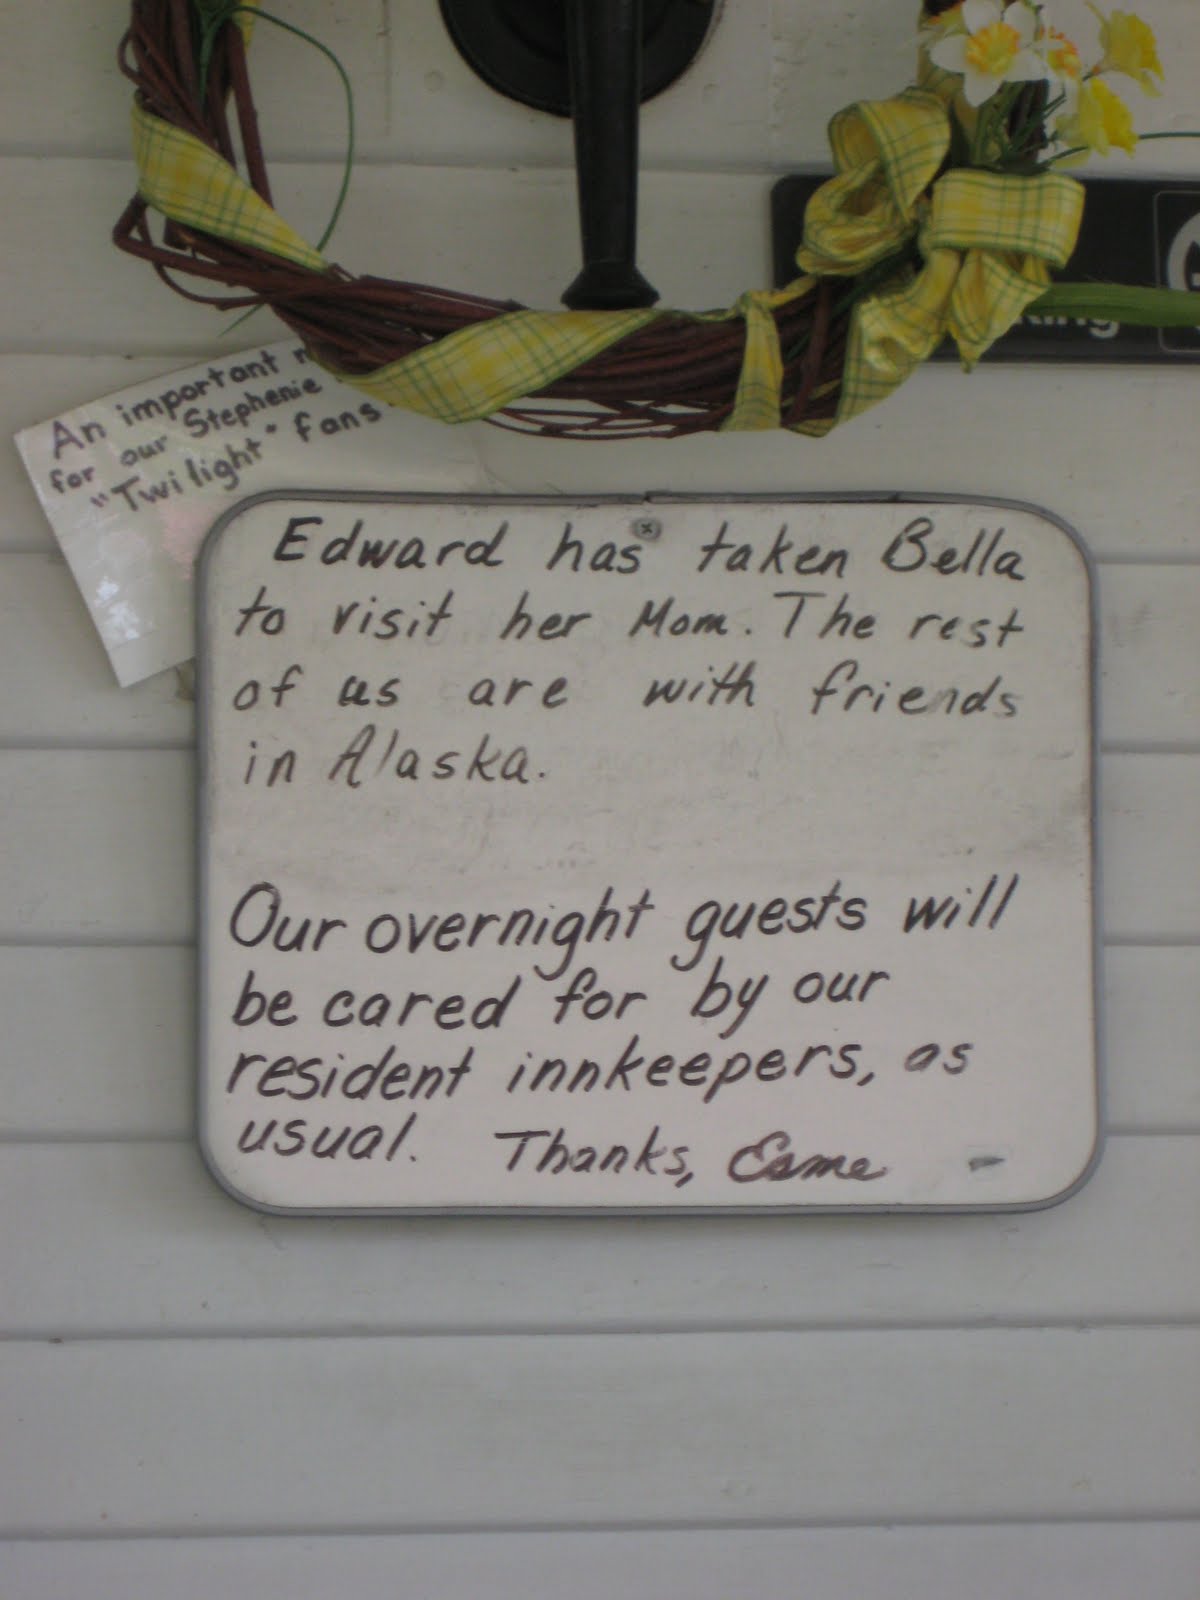 An important
for our Stephenie
"Twilight" fans
Edward has taken Bella
to visit her Mom. The rest
of us are with friends
in Alaska.
Our overnight guests will
be cared for by our
resident innkeepers, as
usual. Thanks, Esme